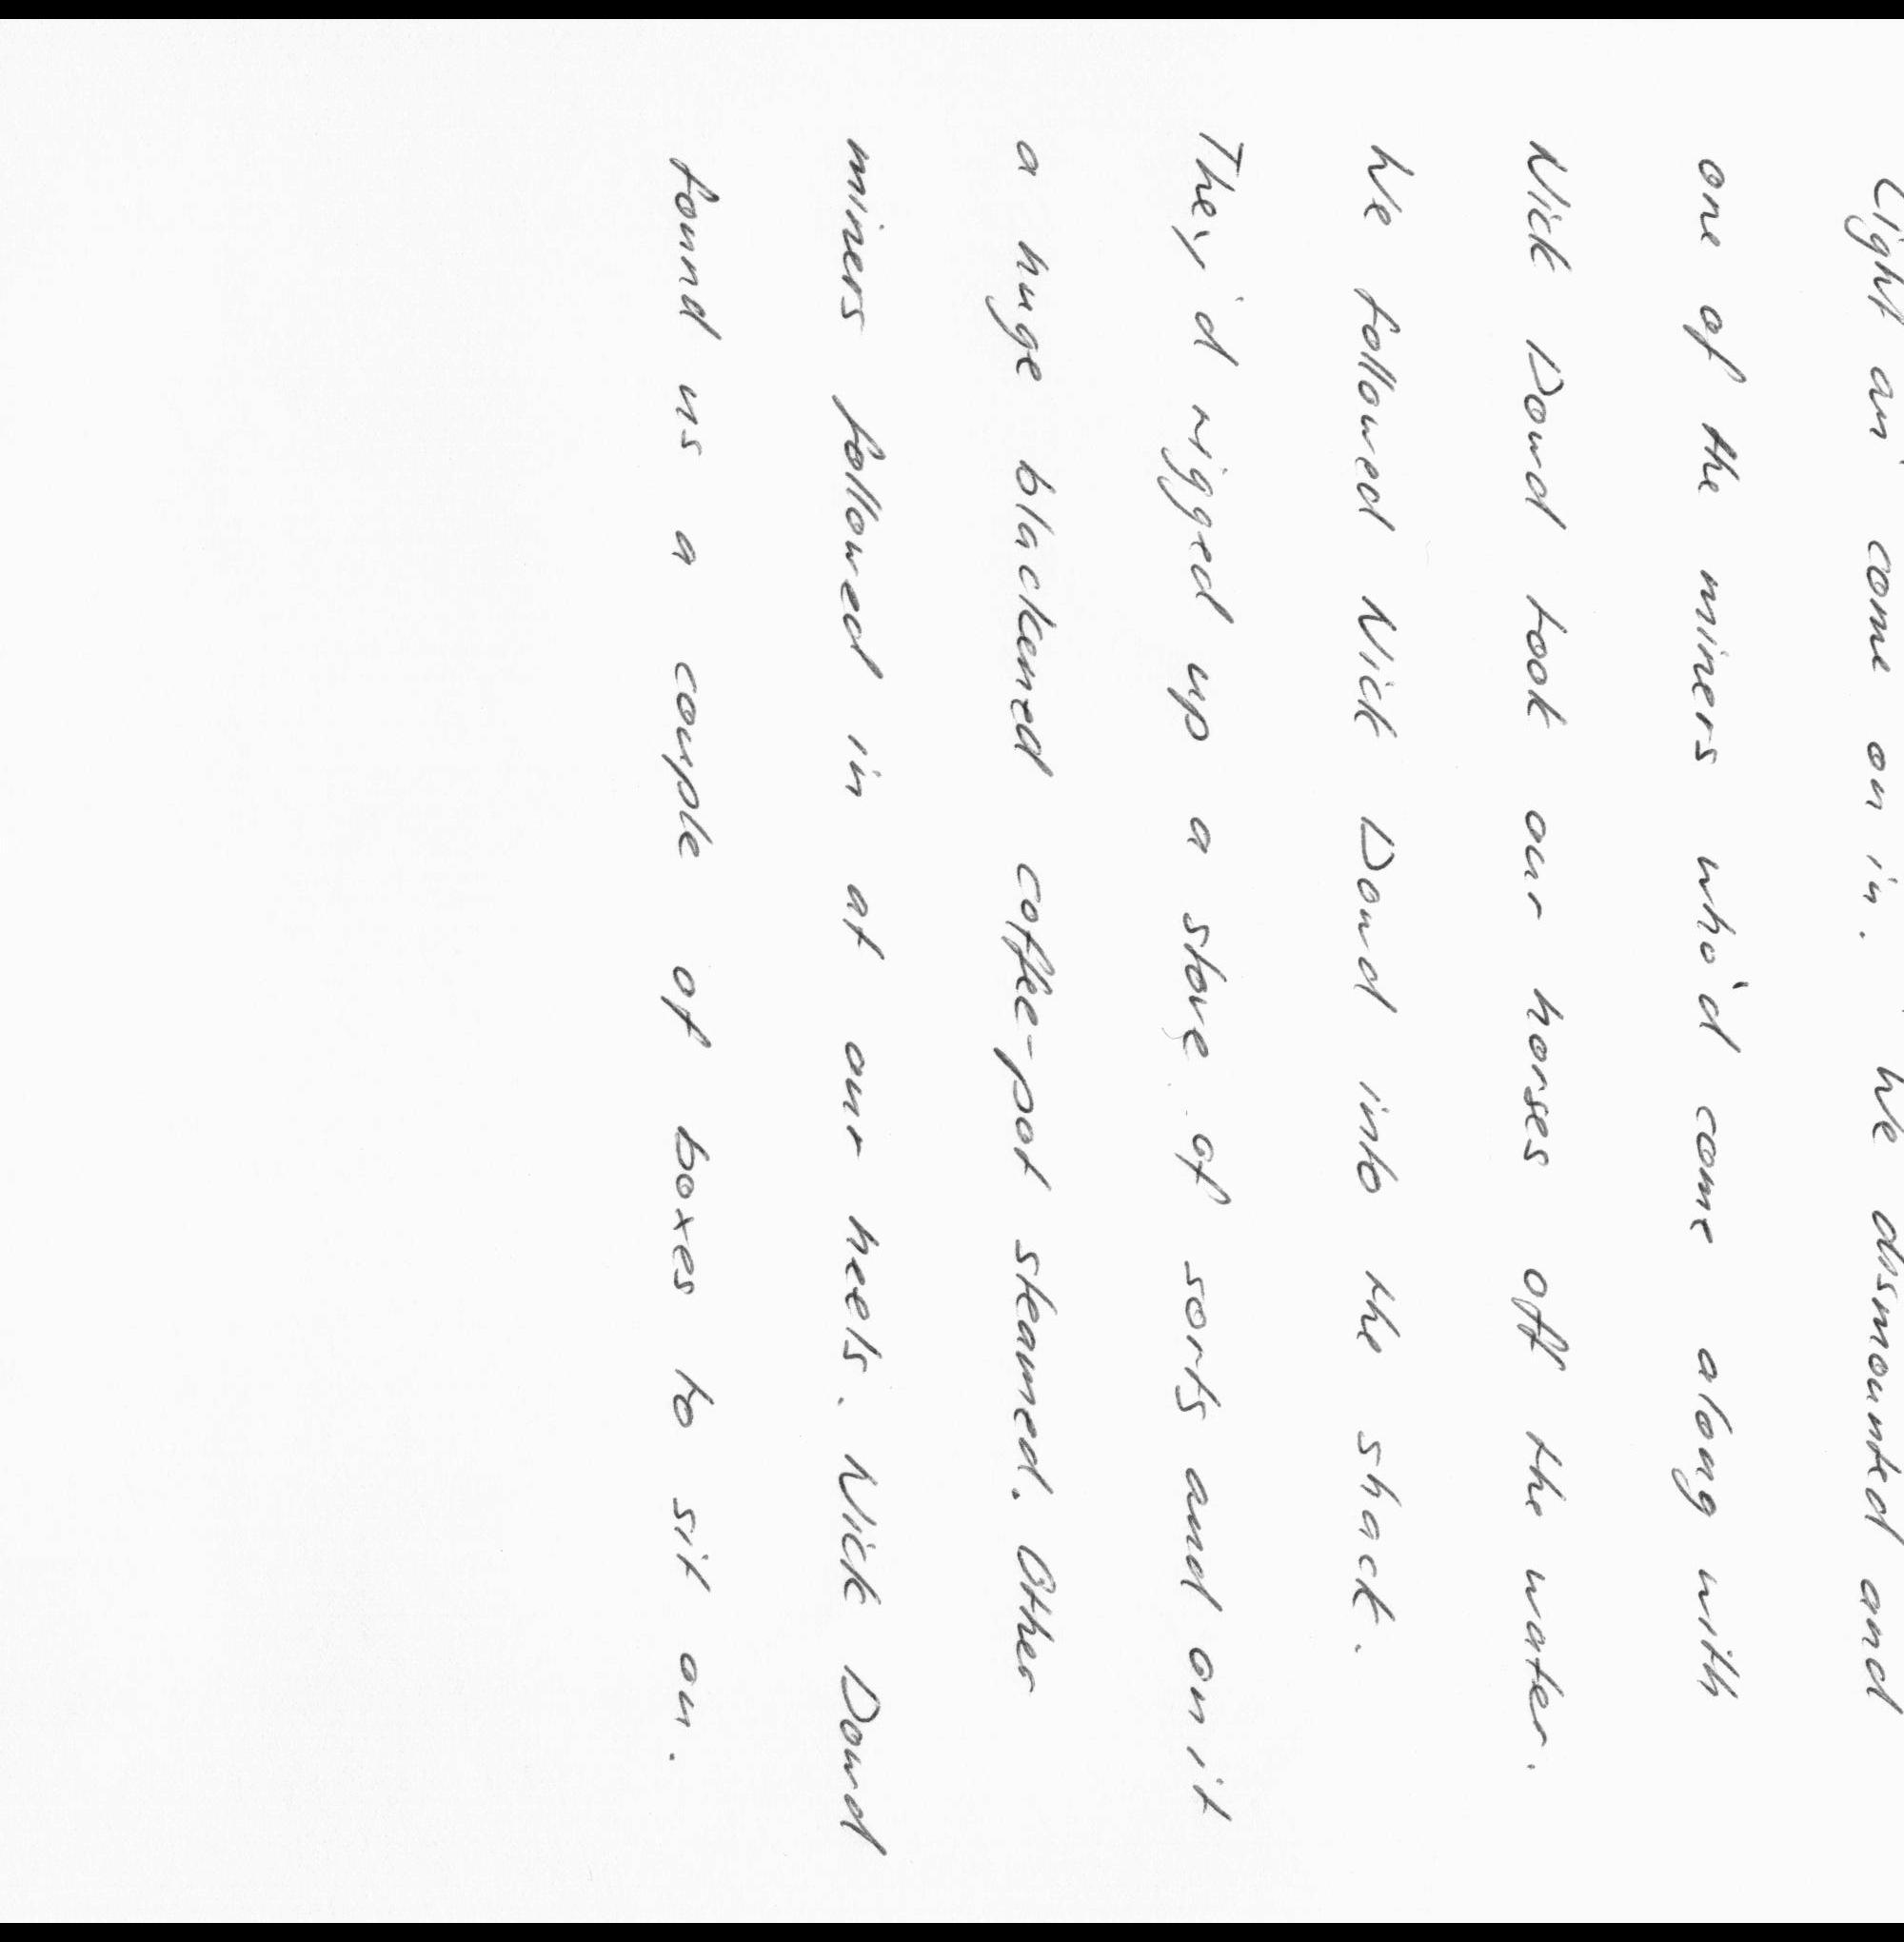 Light an' come on in.' We dismounted and
one of the miners who'd come along with
Nick Dowd took our horses off the water.
We followed Nick Dowd into the shack.
They'd rigged up a stove of sorts and on it
a huge blackened coffee-pot steamed. Other
miners followed in at our heels. Nick Dowd
found us a couple of boxes to sit on.